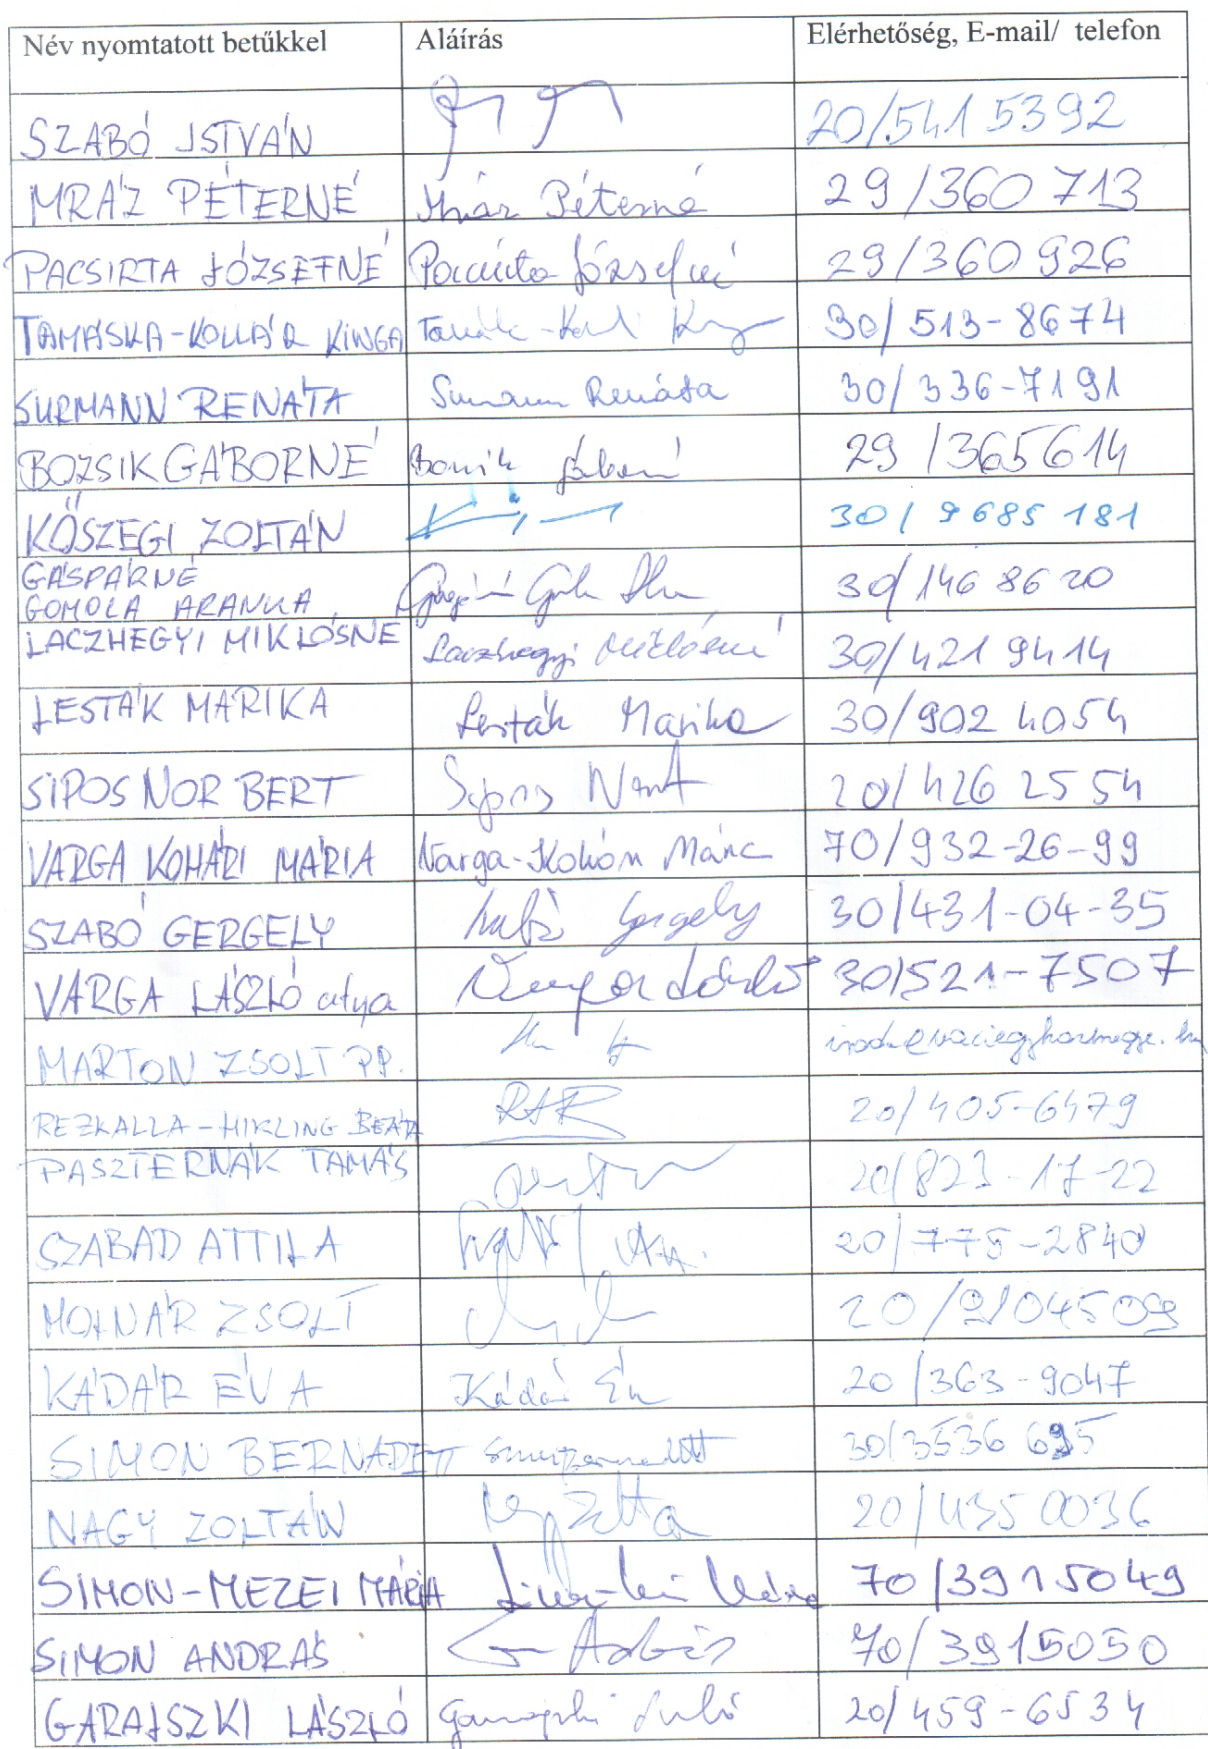 Név nyomtatott betűkkel Aláírás Elérhetőség, E-mail/ telefon
SZABÓ ISTVÁN 20/541 5392
MRÁZ PÉTERNÉ Mráz Péterné 29/360 713
PACSIRTA JÓZSEFNÉ Pacsirta Józsefné 29/360 926
TAMÁSKA-KOLLÁR KINGA 30/513-8674
SURMANN RENÁTA Surmann Renáta 30/336-7191
BOZSIK GÁBORNÉ Bozsik Gáborné 29/365614
KŐSZEGI ZOLTÁN 30/9685 181
GÁSPÁRNÉ
GOMOLA ARANKA 30/146 8620
LACZHEGYI MIKLÓSNÉ Laczhegyi Miklósné 30/421 9414
LESTÁK MARIKA Lesták Marika 30/902 4054
SIPOS NORBERT Sipos 20/426 25 54
VARGA KOHÁRI MÁRIA Varga-Kohári Mária 70/932-26-99
SZABÓ GERGELY Szabó Gergely 30/431-04-35
VARGA LÁSZLÓ atya Varga László 30/521-7507
MARTON ZSOLT PP.
REZKALLA-HIKLING BEÁTA 20/405-6479
PASZTERNÁK TAMÁS 20/823-17-22
SZABAD ATTILA 20/775-2840
MOLNÁR ZSOLT 20/9104509
KÁDÁR ÉVA Kádár Éva 20/363-9047
SIMON BERNADETT Simon Bernadett 30/3536 695
NAGY ZOLTÁN 20/435 0036
SIMON-MEZEI MÁRIA 70/3915049
SIMON ANDRÁS 70/3915050
GARAJSZKI LÁSZLÓ Garajszki László 20/459-6534